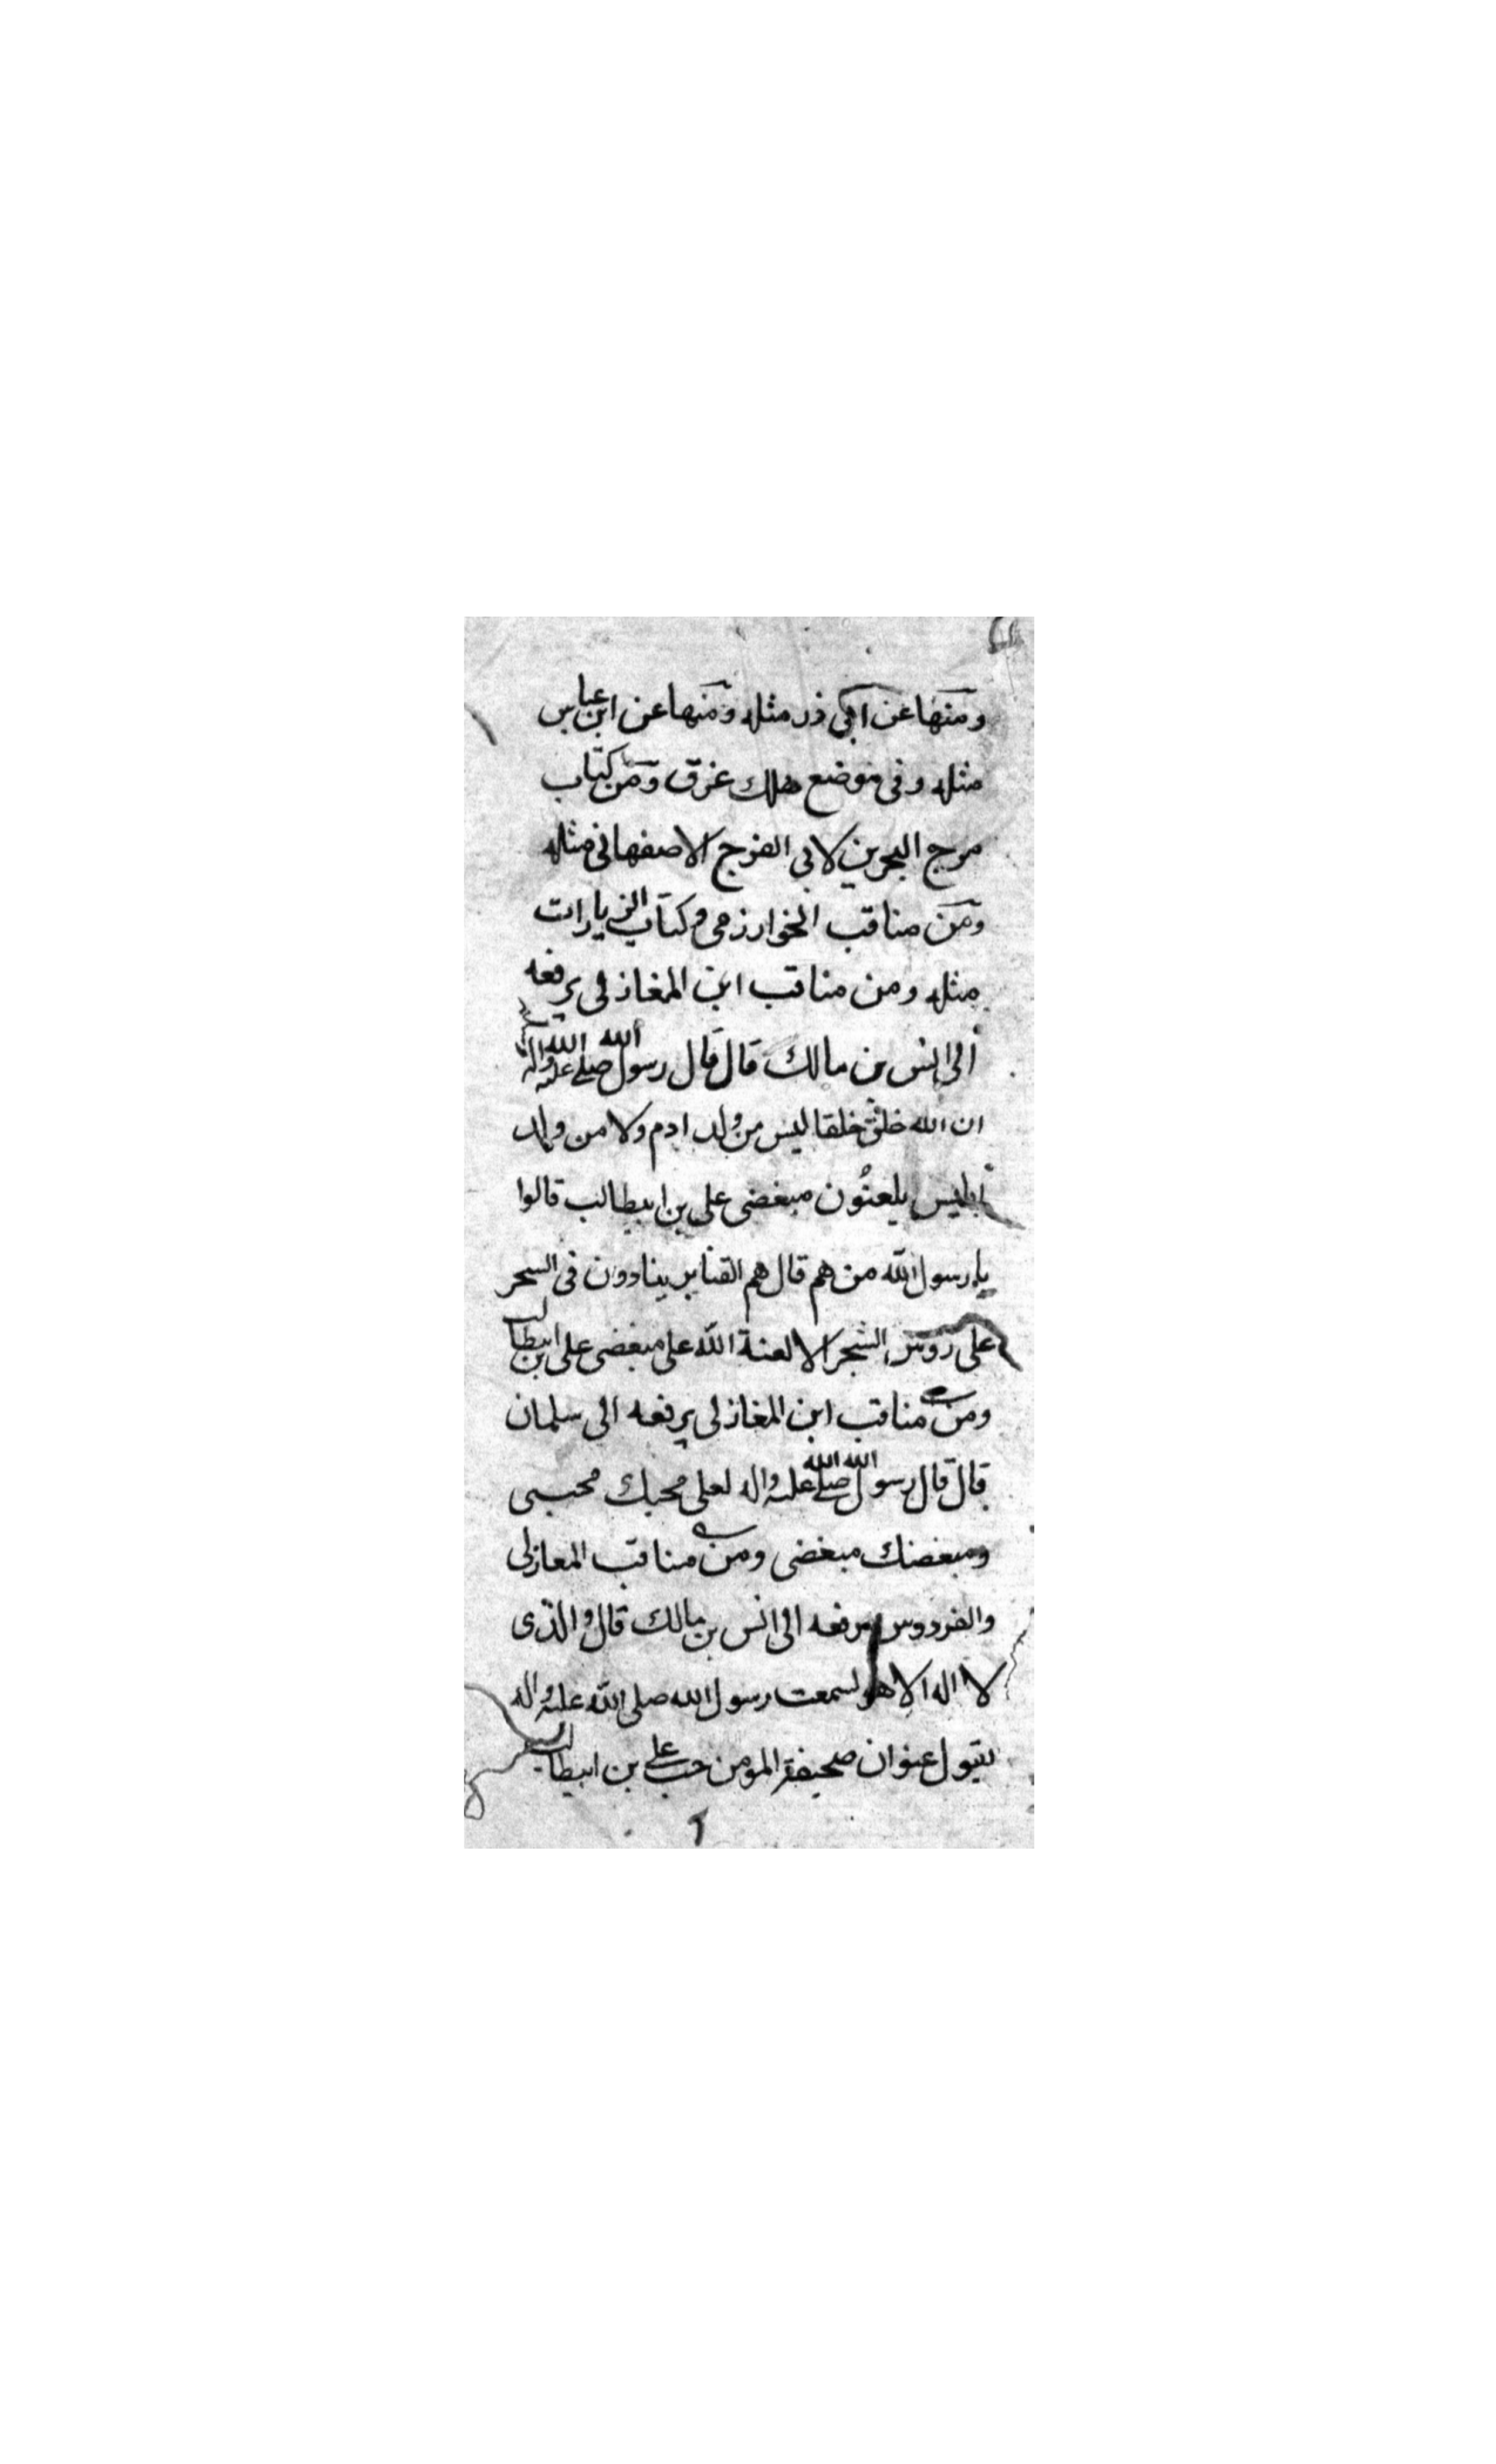 ومنها عن ابي ذر مثله ومنها عن ابن عباس
مثله وفي موضع هلك غرق ومن كتاب
مرج البحرين لابي الفرج الاصفهاني مثله
ومن مناقب الخوارزمي وكتاب الزيارات
مثله ومن مناقب ابن المغازلي يرفعه
الى انس بن مالك قال قال رسول الله صلى الله عليه واله
ان الله خلق خلقا ليس من ولد ادم ولا من ولد
ابليس يلعنون مبغضي على بن ابيطالب قالوا
يا رسول الله من هم قال هم القنابر ينادون في السحر
على روس الشجر الا لعنة الله على مبغضي على بن ابيطالب
ومن مناقب ابن المغازلي يرفعه الى سلمان
قال قال رسول الله صلى الله عليه واله لعلى محبك محبى
ومبغضك مبغضى ومن مناقب المعازلى
والفردوس يرفعه الى انس بن مالك قال والذى
لا اله الا هو لسمعت رسول الله صلى الله عليه واله
يقول عنوان صحيفة المومن حب على بن ابيطالب